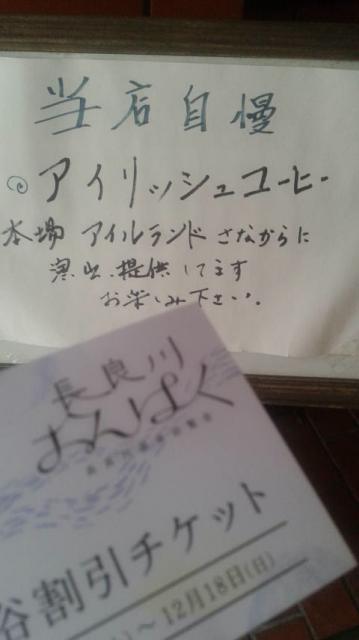 当店自慢
アイリッシュコーヒー
本場 アイルランドさながらに
演出、提供してます
お楽しみ下さい。
長良川
おんぱく
長良川温泉博覧会
割引チケット
～12月18日(日)